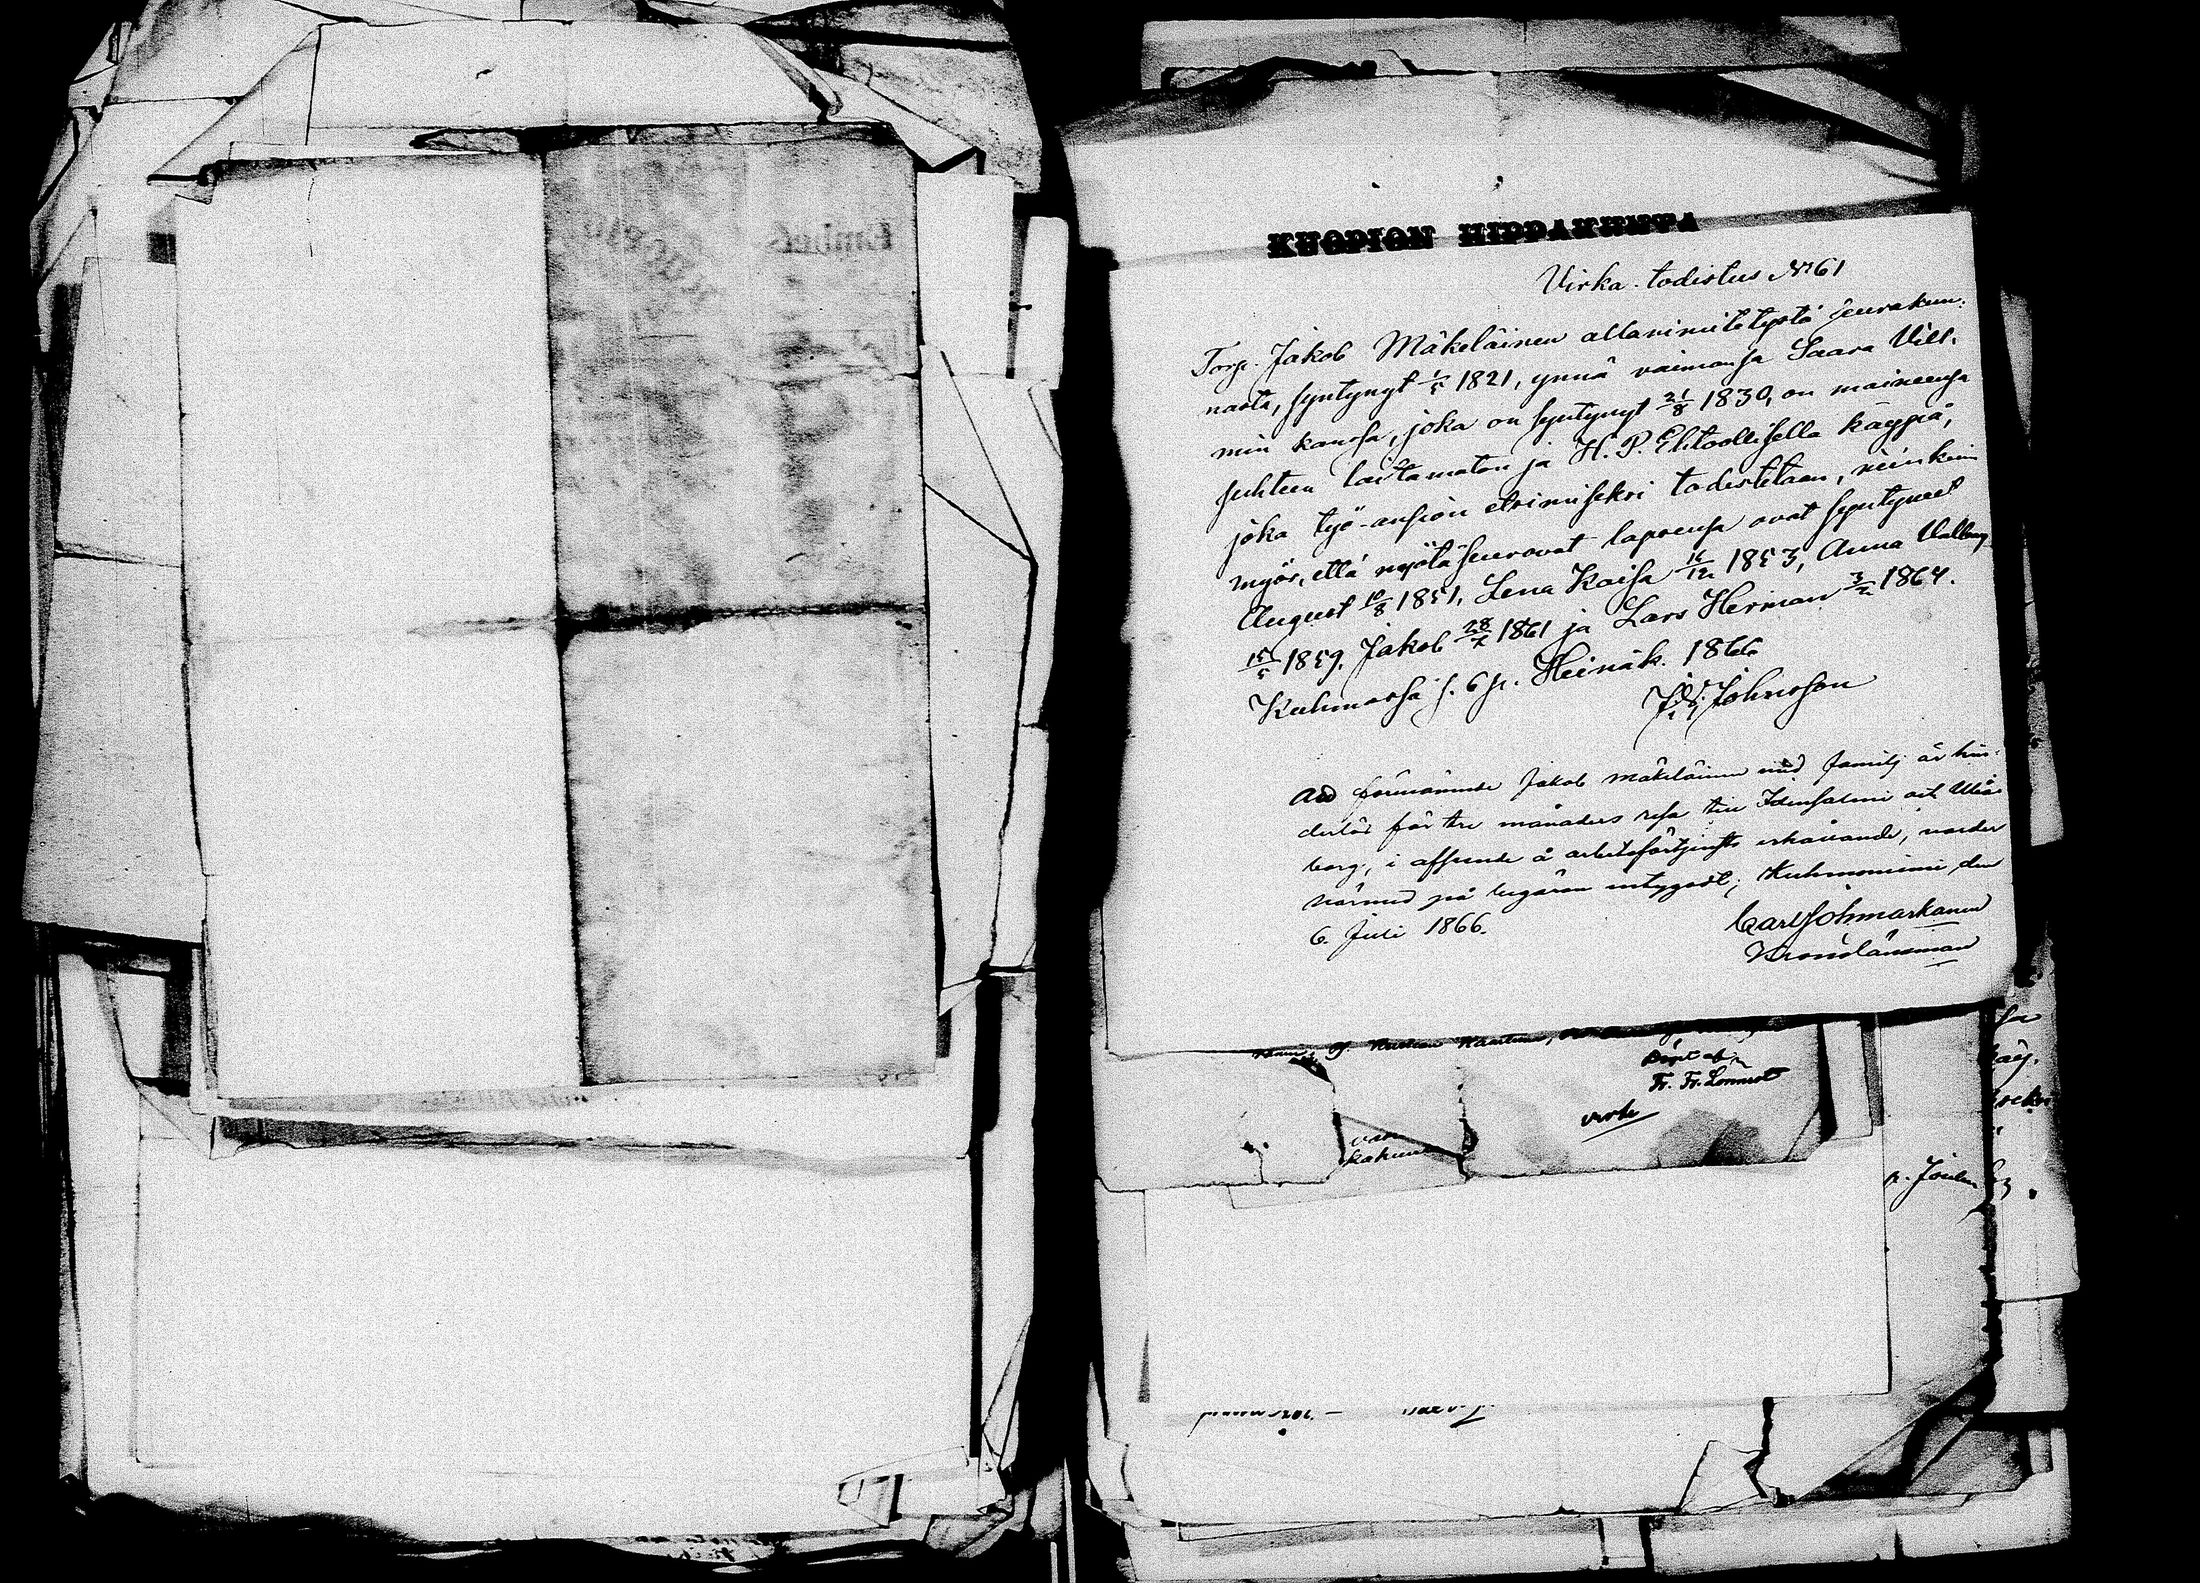 KUOPION HIPPAKUNTA
Virka-todistus No 61
Torp. Jakob Mäkeläinen allanimitetystä seurakun-
nasta, syntynyt 1/5 1821, ynnä vaimonsa Saara Vill-
min kanssa, joka on syntynyt 21/8 1830, on maineensa
suhteen laitamaton ja H. P. Ehtoollisella käypiä,
joka työ-ansion etsimiseksi todistetaan, niinkuin
myös, että myötäseuraavat lapsensa ovat syntyneet
August 10/8 1851, Lena Kaisa 16/12 1853, Anna Valborg
15/5 1859, Jakob 28/7 1861 ja Lars Herman 3/2 1864.
Kuhmossa s. 6 p. Heinäk. 1866
Johnsson
Att förenämnde Jakob Mäkeläinen med familj är hin-
derlös för tre månaders resa till Idensalmi och Uleå-
borg, i afseende å arbetsförtjensts erhållande, varder
härmed på begäran intygadt; Kuhmoniemi den
6. Juli 1866.
Carl Joh Markanen
Kronolänsman
Fr. Fr. Lönnrot